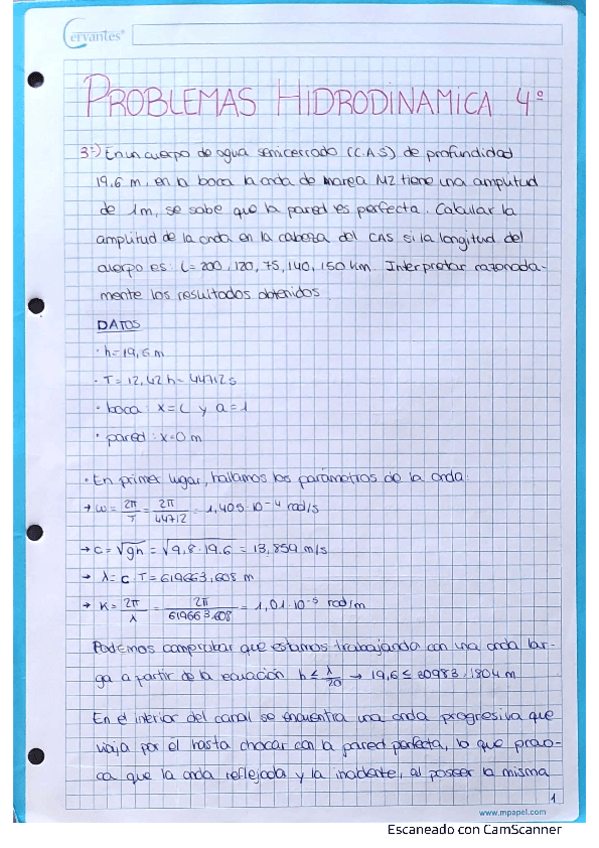 Cervantes
PROBLEMAS HIDRODINAMICA 4º
3º) En un cuerpo de agua semicerrado (C.A.S) de profundidad
19,6 m, en la boca la onda de marea M2 tiene una amplitud
de 1m, se sabe que la pared es perfecta. Calcular la
amplitud de la onda en la cabeza del CAS si la longitud del
cuerpo es: L=200, 120, 75, 140, 150 km. Interpretar razonada-
mente los resultados obtenidos.
DATOS
· h=19,6 m
· T= 12,42 h = 44712 s
· boca: x=L y a=1
· pared: x=0 m
· En primer lugar, hallamos los parámetros de la onda:
→ ω = 2π/T = 2π/44712 = 1,405·10⁻⁴ rad/s
→ c = √gh = √9,8·19,6 = 13,859 m/s
→ λ = c·T = 619663,608 m
→ K = 2π/λ = 2π/619663,608 = 1,01·10⁻⁵ rad/m
Podemos comprobar que estamos trabajando con una onda lar-
ga a partir de la ecuación h ≤ λ/20 → 19,6 ≤ 30983,1804 m
En el interior del canal se encuentra una onda progresiva que
viaja por él hasta chocar con la pared perfecta, lo que provo-
ca que la onda reflejada y la incidente, al poseer la misma
1
www.mpapel.com
Escaneado con CamScanner